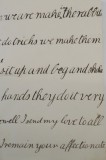 we are make the rabbi
do tricks we make them
sit up and beg and shake
hands they do it very
well I send my love to all
I remain your affectionate